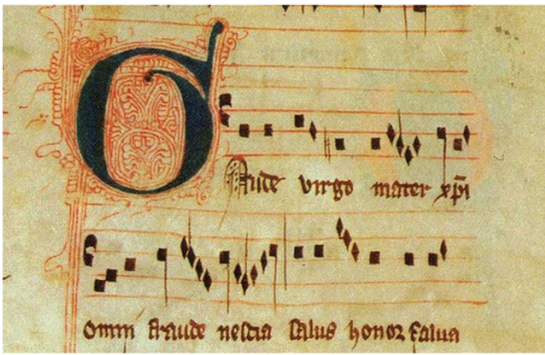 Gaude virgo mater xp̄i
omni fraude nescia salus honor salua